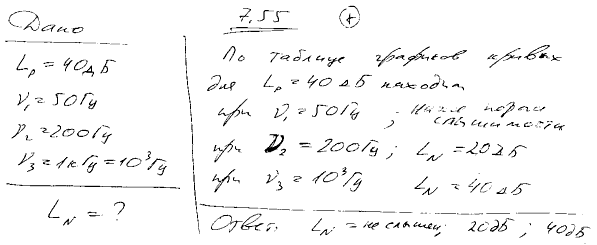 7.55 (+)
Дано
L_p = 40дБ
ν₁ = 50Гц
ν₂ = 200Гц
ν₃ = 1кГц = 10³Гц
L_N = ?
По таблице графиков кривых
для L_p = 40 дБ находим
при ν₁ = 50Гц ; ниже порога слышимости
при ν₂ = 200Гц ; L_N = 20дБ
при ν₃ = 10³Гц L_N = 40дБ
Ответ: L_N = не слышен; 20дБ ; 40дБ